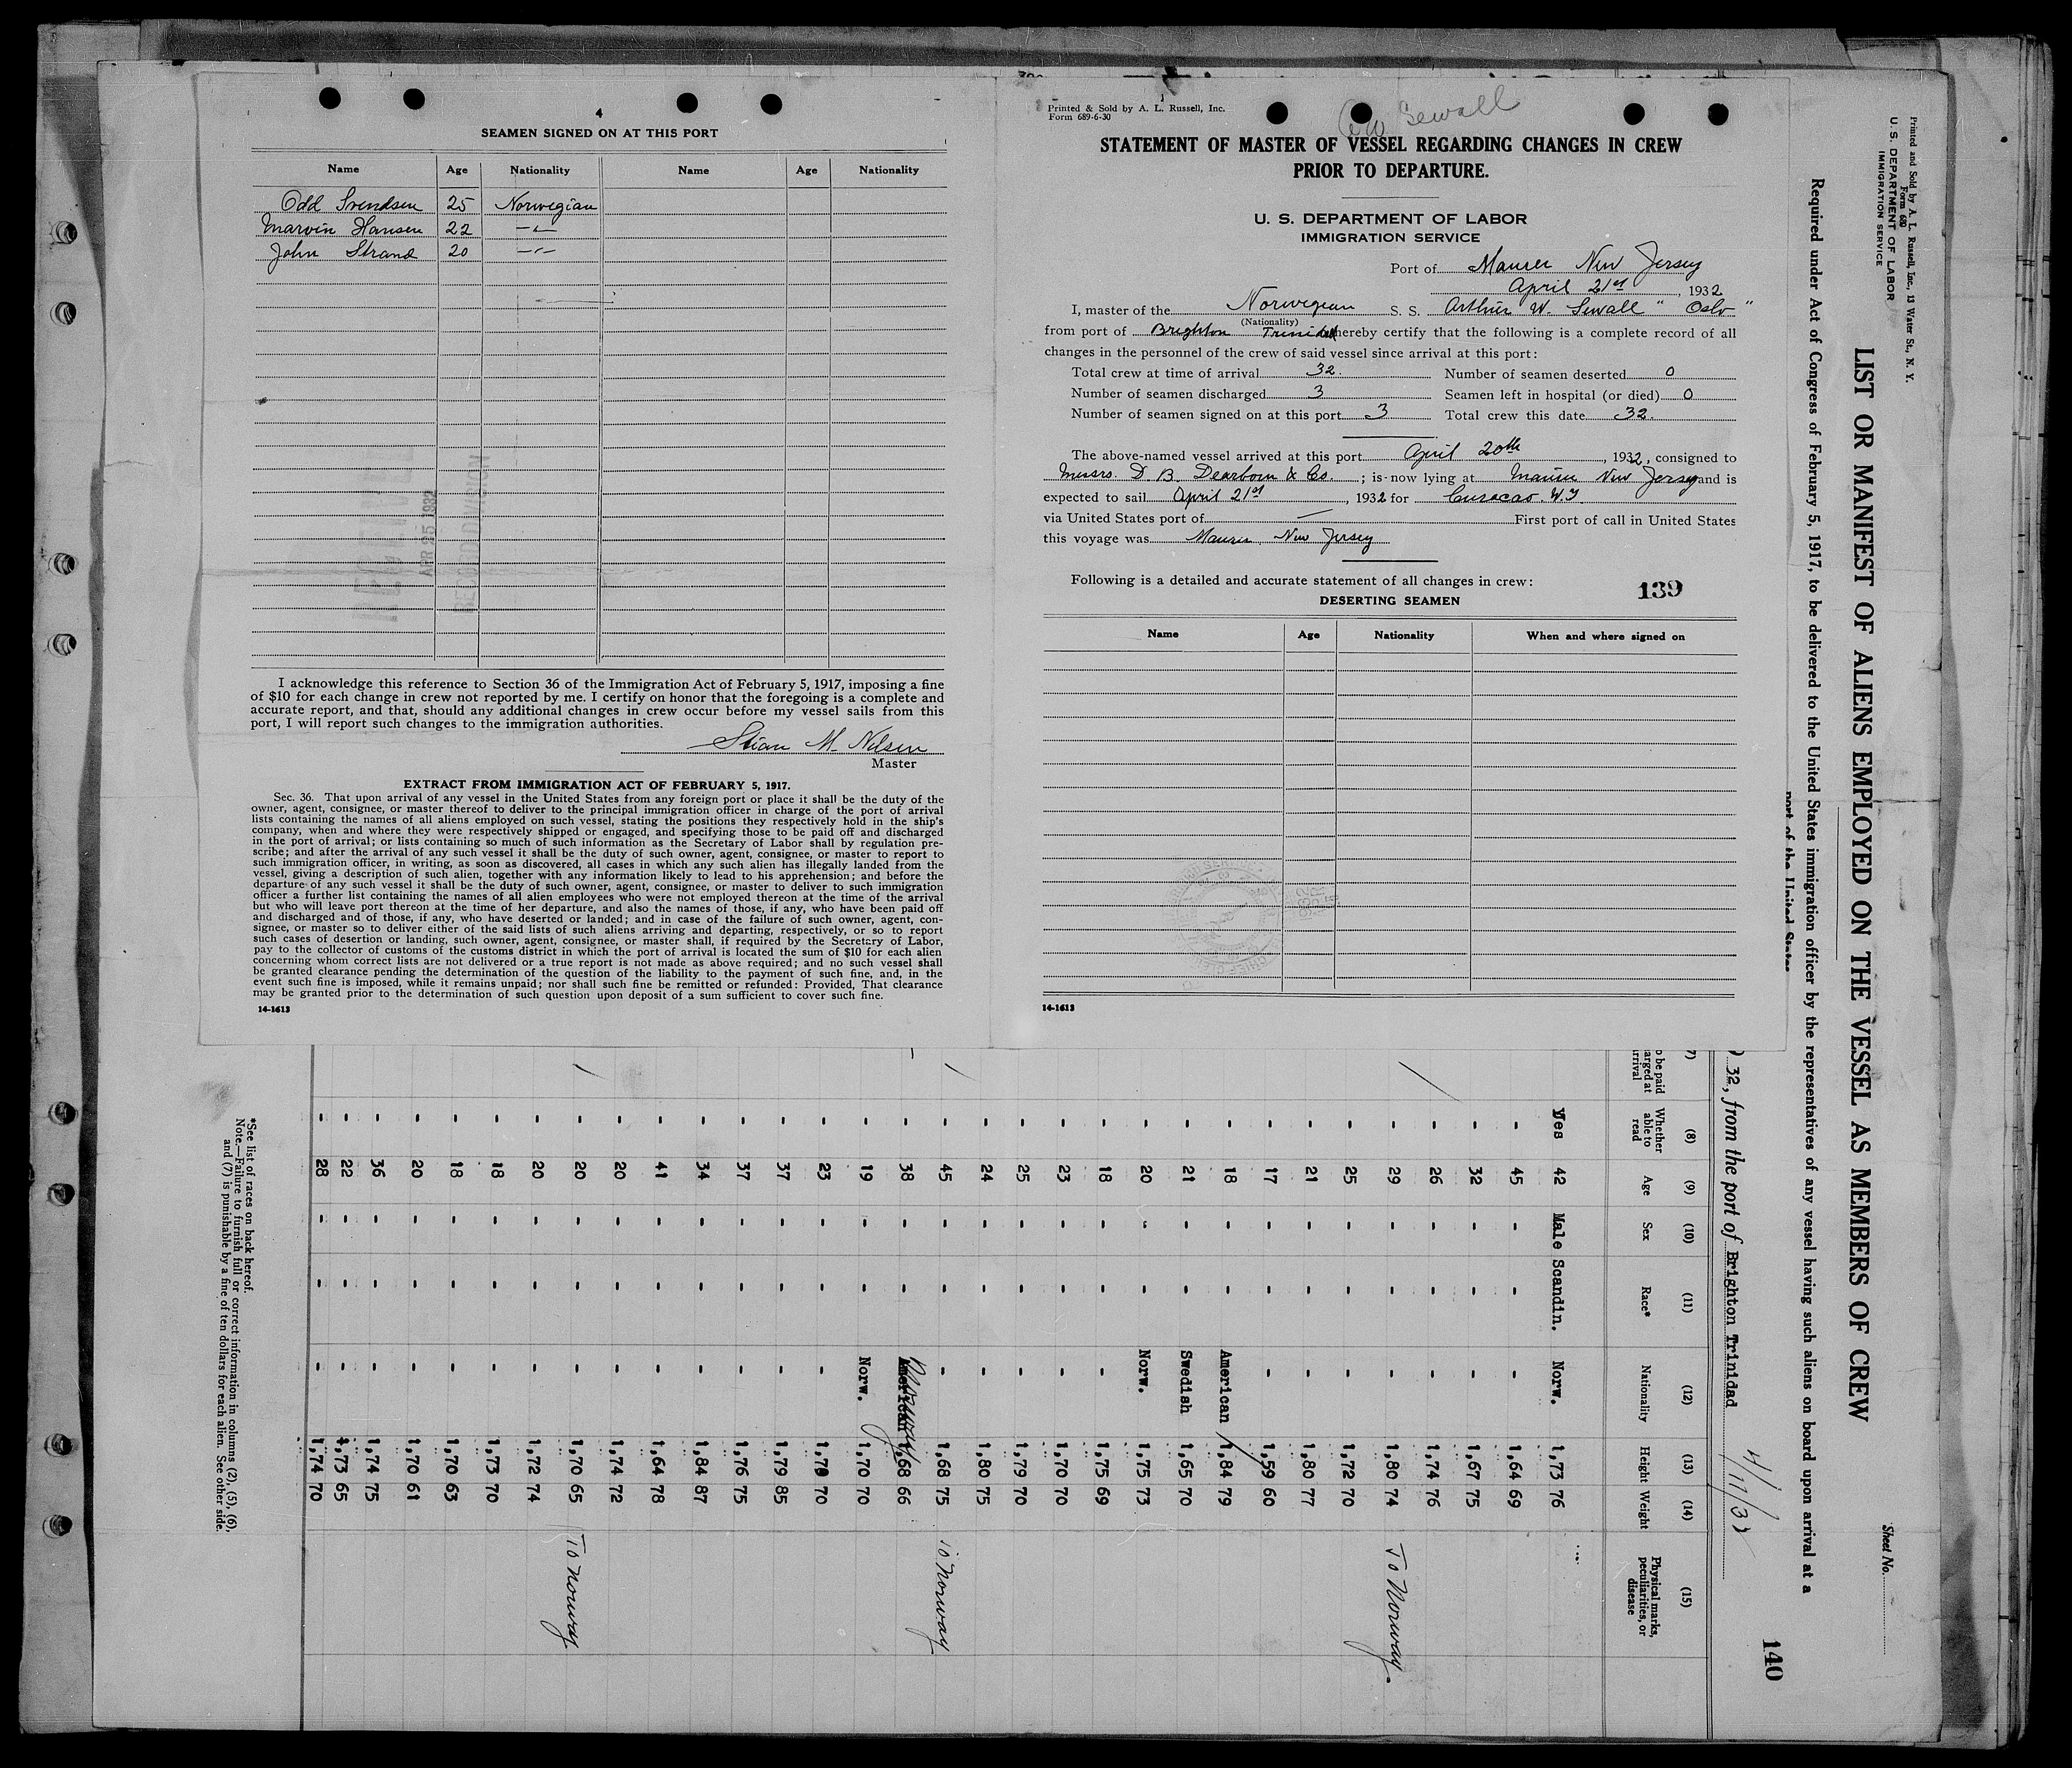 4
SEAMEN SIGNED ON AT THIS PORT
Name Age Nationality Name Age Nationality
Odd Svendsen 25 Norwegian
Marvin Hansen 22 -"-
John Strand 20 -"-
APR 25 1932
RECORD DIVISION
I acknowledge this reference to Section 36 of the Immigration Act of February 5, 1917, imposing a fine
of $10 for each change in crew not reported by me. I certify on honor that the foregoing is a complete and
accurate report, and that, should any additional changes in crew occur before my vessel sails from this
port, I will report such changes to the immigration authorities.
Stian M. Nilsen
Master
EXTRACT FROM IMMIGRATION ACT OF FEBRUARY 5, 1917.
Sec. 36. That upon arrival of any vessel in the United States from any foreign port or place it shall be the duty of the
owner, agent, consignee, or master thereof to deliver to the principal immigration officer in charge of the port of arrival
lists containing the names of all aliens employed on such vessel, stating the positions they respectively hold in the ship's
company, when and where they were respectively shipped or engaged, and specifying those to be paid off and discharged
in the port of arrival; or lists containing so much of such information as the Secretary of Labor shall by regulation pre-
scribe; and after the arrival of any such vessel it shall be the duty of such owner, agent, consignee, or master to report to
such immigration officer, in writing, as soon as discovered, all cases in which any such alien has illegally landed from the
vessel, giving a description of such alien, together with any information likely to lead to his apprehension; and before the
departure of any such vessel it shall be the duty of such owner, agent, consignee, or master to deliver to such immigration
officer a further list containing the names of all alien employees who were not employed thereon at the time of the arrival
but who will leave port thereon at the time of her departure, and also the names of those, if any, who have been paid off
and discharged and of those, if any, who have deserted or landed; and in case of the failure of such owner, agent, con-
signee, or master so to deliver either of the said lists of such aliens arriving and departing, respectively, or so to report
such cases of desertion or landing, such owner, agent, consignee, or master shall, if required by the Secretary of Labor,
pay to the collector of customs of the customs district in which the port of arrival is located the sum of $10 for each alien
concerning whom correct lists are not delivered or a true report is not made as above required; and no such vessel shall
be granted clearance pending the determination of the question of the liability to the payment of such fine, and, in the
event such fine is imposed, while it remains unpaid; nor shall such fine be remitted or refunded: Provided, That clearance
may be granted prior to the determination of such question upon deposit of a sum sufficient to cover such fine.
14-1613
1
Printed & Sold by A. L. Russell, Inc.
Form 689-6-30
Sewall
STATEMENT OF MASTER OF VESSEL REGARDING CHANGES IN CREW
PRIOR TO DEPARTURE.
U. S. DEPARTMENT OF LABOR
IMMIGRATION SERVICE
Port of Maurer New Jersey
April 21st, 1932
I, master of the Norwegian S. S. Arthur W. Sewall " Oslo "
(Nationality)
from port of Brighton Trinidad hereby certify that the following is a complete record of all
changes in the personnel of the crew of said vessel since arrival at this port:
Total crew at time of arrival 32. Number of seamen deserted 0
Number of seamen discharged 3 Seamen left in hospital (or died) 0
Number of seamen signed on at this port 3 Total crew this date 32.
The above-named vessel arrived at this port April 20th, 1932, consigned to
Messrs. D. B. Dearborn & Co.; is now lying at Maurer New Jersey and is
expected to sail April 21st, 1932 for Curacao. W.I.
via United States port of — First port of call in United States
this voyage was Maurer New Jersey
Following is a detailed and accurate statement of all changes in crew:
139
DESERTING SEAMEN
Name Age Nationality When and where signed on
14-1613
Printed and Sold by A. L. Russell, Inc., 13 Water St., N. Y.
Form 680
U. S. DEPARTMENT OF LABOR
IMMIGRATION SERVICE
Sheet No.
LIST OR MANIFEST OF ALIENS EMPLOYED ON THE VESSEL AS MEMBERS OF CREW
Required under Act of Congress of February 5, 1917, to be delivered to the United States immigration officer by the representatives of any vessel having such aliens on board upon arrival at a
port of the United States
140
32, from the port of Brighton Trinidad 4/11/32
(7) (8) (9) (10) (11) (12) (13) (14) (15)
o be paid
arged at
rrival
Whether
able to
read
Age Sex Race* Nationality Height Weight
Physical marks,
peculiarities, or
disease
Yes 42 Male Scandin. Norw. 1,73 76
- 45 - - - 1,64 69
- 32 - - - 1,67 75
- 26 - - - 1,74 76
- 29 - - - 1,80 74 To Norway.
- 25 - - - 1,72 70
- 21 - - - 1,80 77
- 17 - - - 1,59 60
- 18 - - American 1,84 79
- 21 - - Swedish 1,65 70
- 20 - - Norw. 1,75 73
- 18 - - - 1,75 69
- 23 - - - 1,70 70
- 25 - - - 1,79 70
- 24 - - - 1,80 75
- 45 - - - 1,68 75 To Norway
- 38 - - American Norway 1,68 66
- 19 - - Norw. 1,70 70
- 23 - - - 1,70 70
- 37 - - - 1,79 85
- 37 - - - 1,76 75
- 34 - - - 1,84 87
- 41 - - - 1,64 78
- 20 - - - 1,74 72
- 20 - - - 1,70 65 To Norway
- 20 - - - 1,72 74
- 18 - - - 1,73 70
- 18 - - - 1,70 63
- 20 - - - 1,70 61
- 36 - - - 1,74 75
- 22 - - - 1,73 65
- 28 - - - 1,74 70
*See list of races on back hereof.
Note.—Failure to furnish full or correct information in columns (2), (5), (6),
and (7) is punishable by a fine of ten dollars for each alien. See other side.